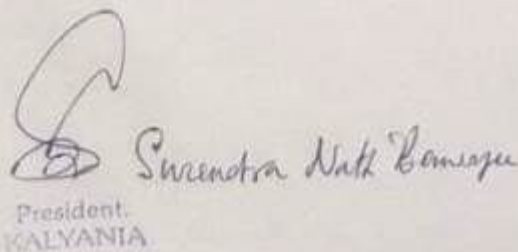 Surendra Nath Banerjee
President.
KALYANIA